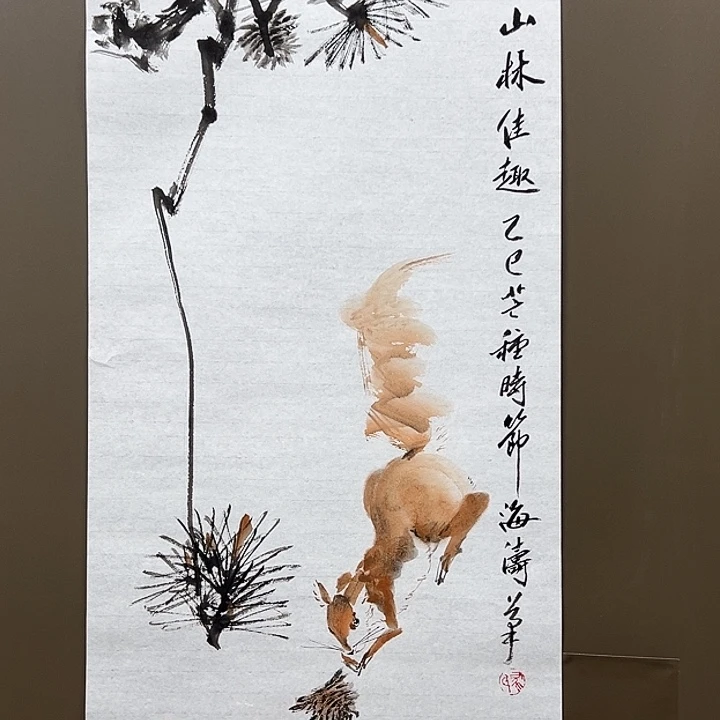 山林佳趣乙巳芒種時節海濤筆